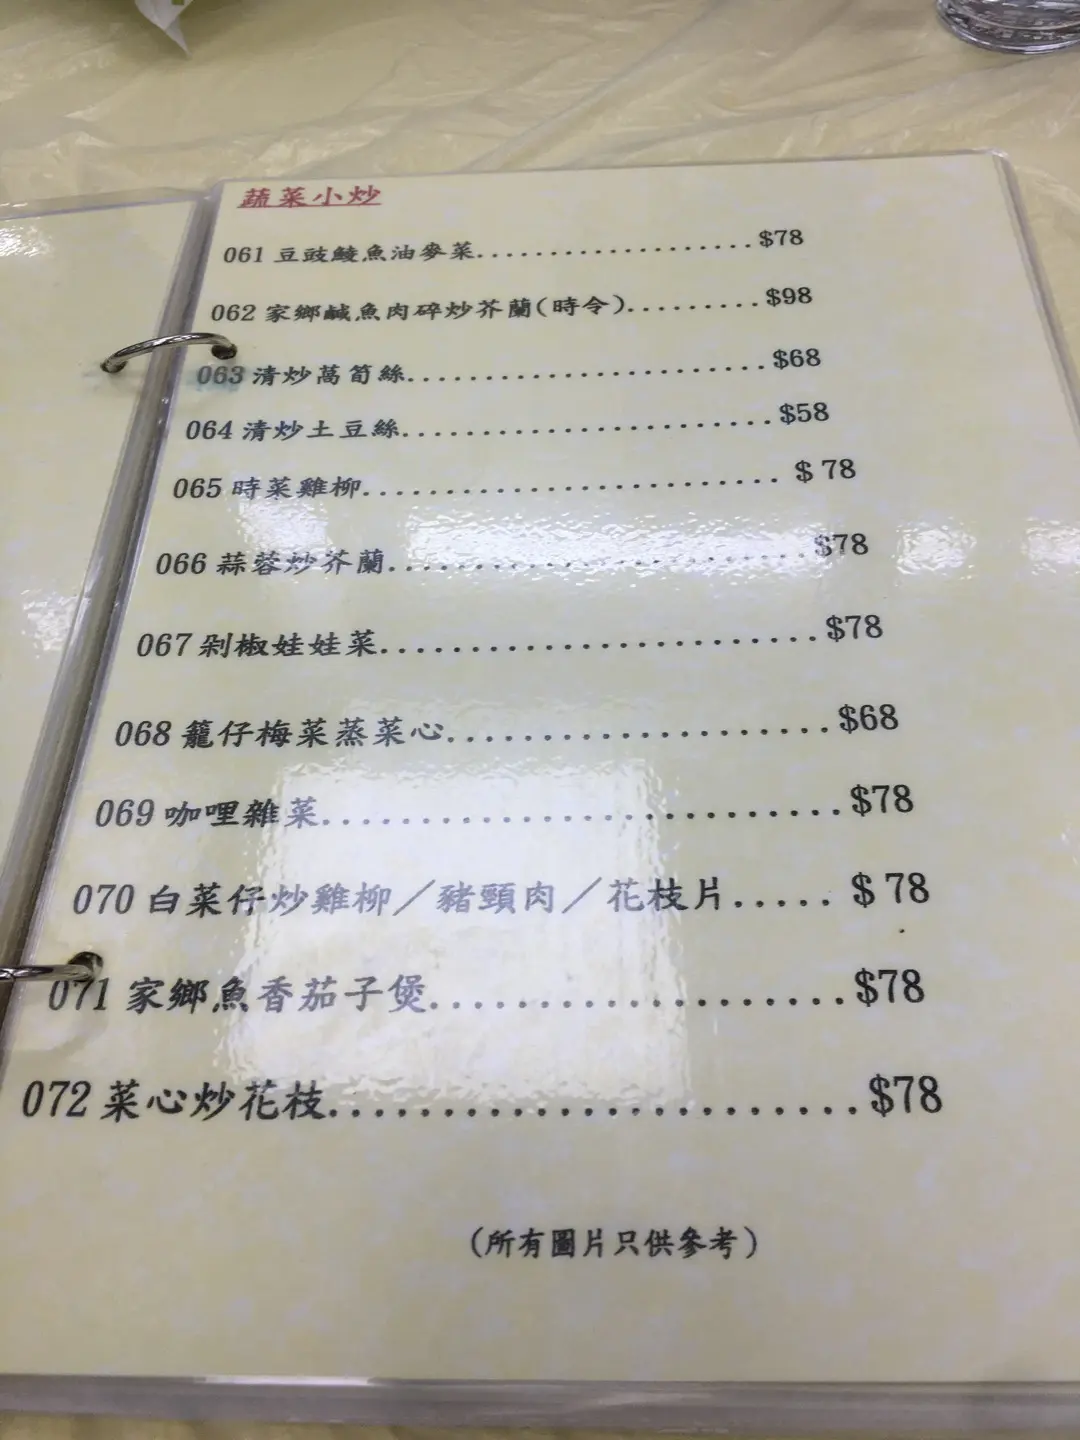 蔬菜小炒
061 豆豉鯪魚油麥菜...................$78
062 家鄉鹹魚肉碎炒芥蘭(時令).........$98
063 清炒萵筍絲.........................$68
064 清炒土豆絲.........................$58
065 時菜雞柳.......................... $ 78
066 蒜蓉炒芥蘭..........................$78
067 剁椒娃娃菜.........................$78
068 籠仔梅菜蒸菜心.....................$68
069 咖哩雜菜...........................$78
070 白菜仔炒雞柳／豬頸肉／花枝片..... $ 78
071 家鄉魚香茄子煲....................$78
072 菜心炒花枝........................$78
(所有圖片只供參考)